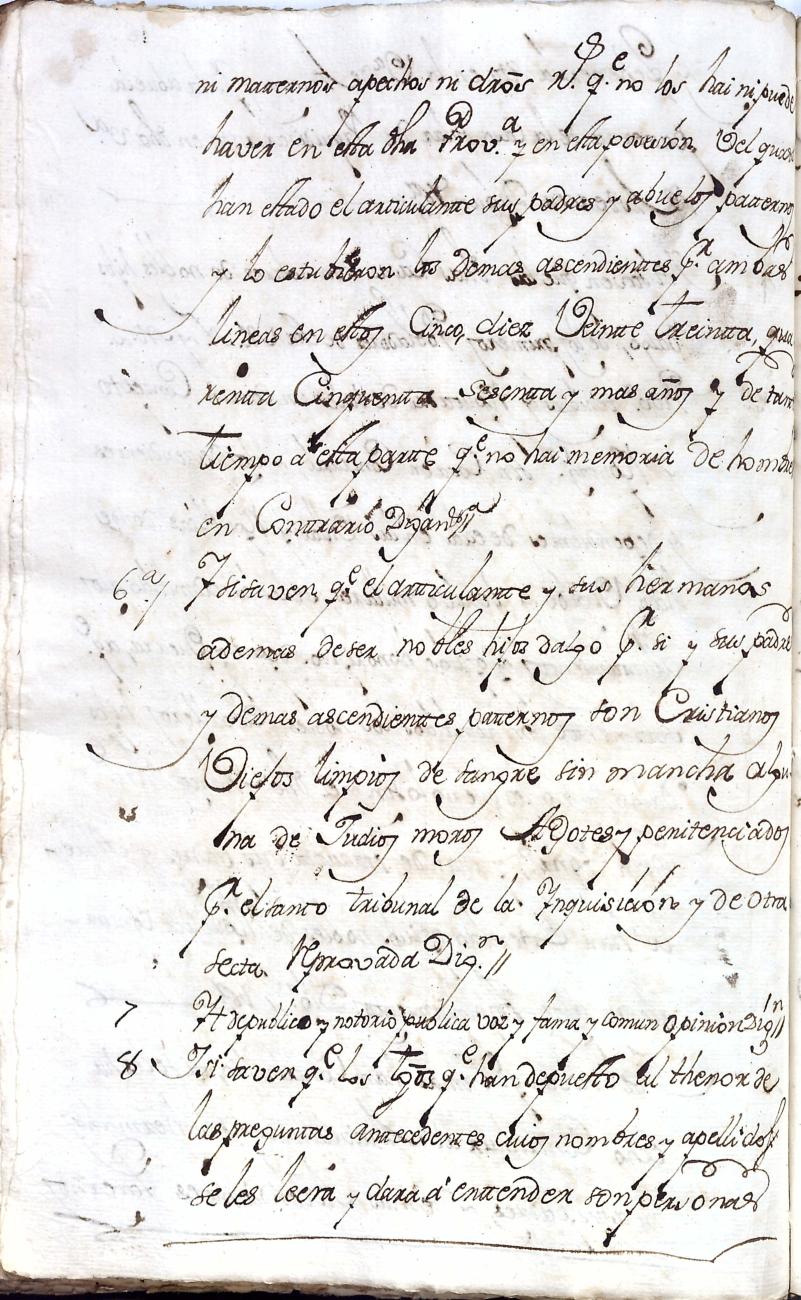 ni matternos apechos ni dros Rs. q.e no los hai ni puede
haver en esta dha Prov.a y en esta posesion Vel quasi
han estado el articulante sus padres y abuelos patternos
y lo estubieron los demas ascendienttes p.r ambas
lineas en estos Cinco, diez Veintte treintta, qua
rentta Cinquentta sesentta y mas años y de tan
tiempo a estta partte q.e no hai memoria de hombres
en Contrario Digan
6a/ Y si saven q.e el articulante y sus hermanos
ademas de ser nobles hijos dalgo p.r si y sus padre
y demas ascendienttes patternos son Cristianos
Viejos limpios de sangre sin mancha algu
na de Judios moros Agotes y penitenciados
p.r el santo tribunal de la Inquisicion y de Otra
secta Reprovada Dig.n //
7 Yt de publico y notorio publica voz y fama y comun Opinion Dig.n //
8 Y si saven q.e los tgos q.e han depuesto al thenor de
las preguntas antecedentes cuios nombres y apellidos
se les leera y dara a enttender son personas